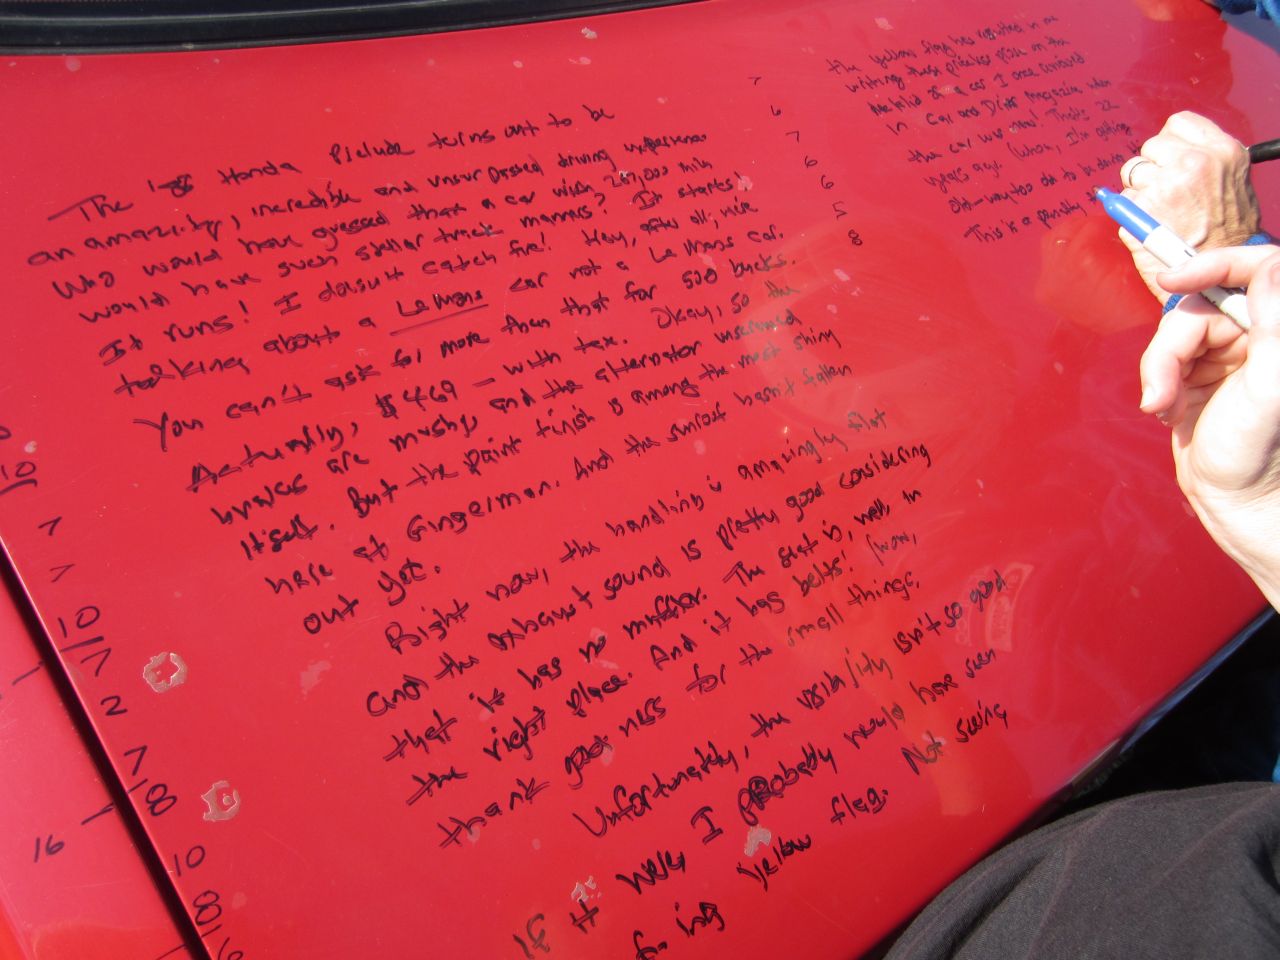 The 1988 Honda Prelude turns out to be
an amazing, incredible and unsurpassed driving experience
Who would have guessed that a car with 267,000 miles
would have such stellar track manners? It starts!
It runs! I doesn't catch fire! Hey, after all, we're
talking about a LeMons car not a Le Mans car.
You can't ask for more than that for 500 bucks.
Actually, $469 - with tax. Okay, so the
brakes are mushy, and the alternator unscrewed
itself. But the paint finish is among the most shiny
here at Gingerman. And the sunroof hasn't fallen
out yet.
Right now, the handling is amazingly flat
and the exhaust sound is pretty good considering
that it has no muffler. The seat is, well, in
the right place. And it has belts! Wow,
thank goodness for the small things.
Unfortunately, the visibility isn't so good
If it were I probably would have seen
yellow flag. Not seeing
the yellow flag has resulted in me
writing these priceless prose on the
lid of a car I once
in Car and Driver Magazine when
the car was new! That's 22
years ago. Whoa, I'm getting
old-way too old to be doing
This is a penalty
7
6
7
6
6
5
8
10
7
7
10
7
2
7
8
16
10
8
6